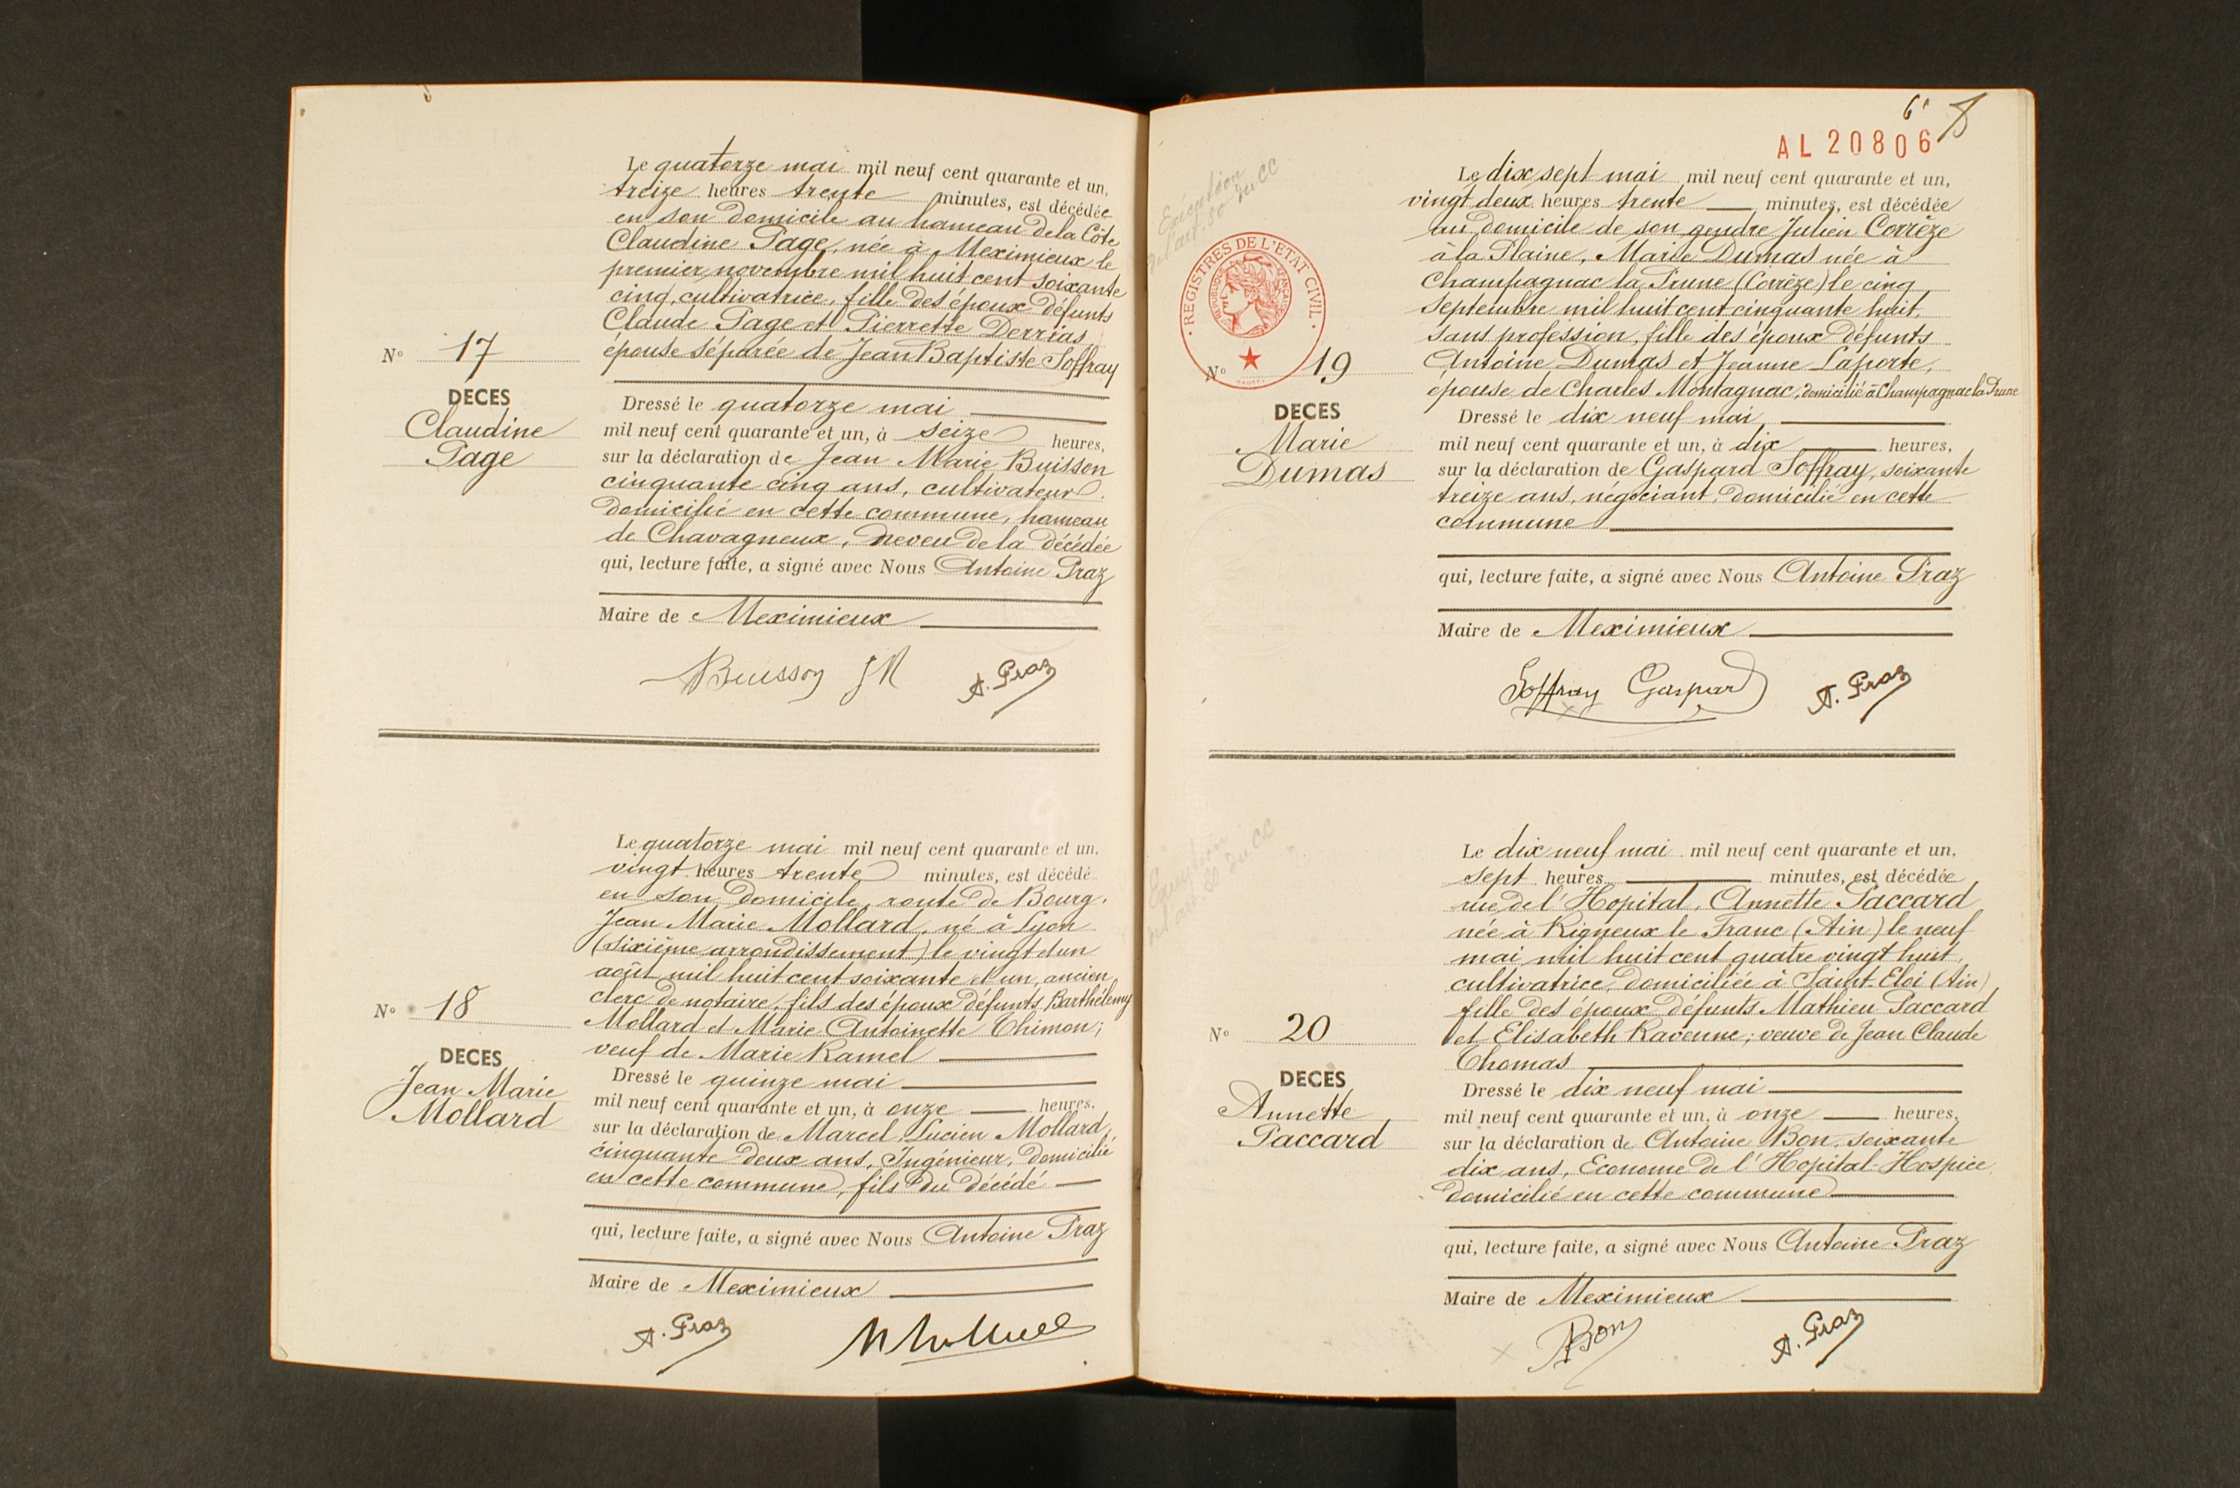 Le quatorze mai mil neuf cent quarante et un,
treize heures trente minutes, est décédée
en son domicile au hameau de la Côte
Claudine Page, née à Meximieux le
premier novembre mil huit cent soixante
cinq, cultivatrice, fille des époux défunts
Claude Page et Pierrette Derrias
épouse séparée de Jean Baptiste Soffray
N° 17
DECES
Claudine
Page
Dressé le quatorze mai
mil neuf cent quarante et un, à seize heures,
sur la déclaration de Jean Marie Buisson
cinquante cinq ans, cultivateur
domicilié en cette commune, hameau
de Chavagneux, neveu de la décédée
qui, lecture faite, a signé avec Nous Antoine Praz
Maire de Meximieux
Buisson JM A. Praz
Le quatorze mai mil neuf cent quarante et un,
vingt heures trente minutes, est décédé
en son domicile, route de Bourg,
Jean Marie Mollard, né à Lyon
(sixième arrondissement) le vingt et un
août mil huit cent soixante et un, ancien
clerc de notaire, fils des époux défunts Barthélemy
Mollard et Marie Antoinette Thimon;
veuf de Marie Ramel
N° 18
DECES
Jean Marie
Mollard
Dressé le quinze mai
mil neuf cent quarante et un, à onze heures,
sur la déclaration de Marcel, Lucien Mollard,
cinquante deux ans, Ingénieur, domicilié
en cette commune, fils du décédé
qui, lecture faite, a signé avec Nous Antoine Praz
Maire de Meximieux
A. Praz
6
AL 20806
Exécution
de l'art. 50 du CC
REGISTRES DE L'ETAT CIVIL
Le dix sept mai mil neuf cent quarante et un,
vingt deux heures trente minutes, est décédée
au domicile de son gendre Julien Corrèze
à la Plaine, Marie Dumas née à
Champagnac la Prune (Corrèze) le cinq
septembre mil huit cent cinquante huit,
sans profession, fille des époux défunts
Antoine Dumas et Jeanne Laporte,
épouse de Charles Montagnac, domicilié à Champagnac la Prune
N° 19
DECES
Marie
Dumas
Dressé le dix neuf mai
mil neuf cent quarante et un, à dix heures,
sur la déclaration de Gaspard Soffray, soixante
treize ans, négociant, domicilié en cette
commune
qui, lecture faite, a signé avec Nous Antoine Praz
Maire de Meximieux
Soffray Gaspard A. Praz
Exécution
de l'art. 50 du CC
Le dix neuf mai mil neuf cent quarante et un,
sept heures minutes, est décédée
rue de l'Hopital, Annette Paccard
née à Rigneux le Franc (Ain) le neuf
mai mil huit cent quatre vingt huit,
cultivatrice, domiciliée à Saint-Eloi (Ain)
fille des époux défunts Mathieu Paccard
et Elisabeth Ravenne; veuve de Jean Claude
Thomas
N° 20
DECES
Annette
Paccard
Dressé le dix neuf mai
mil neuf cent quarante et un, à onze heures,
sur la déclaration de Antoine Bon, soixante
dix ans, Econome de l'Hopital-Hospice,
domicilié en cette commune
qui, lecture faite, a signé avec Nous Antoine Praz
Maire de Meximieux
ABon A. Praz